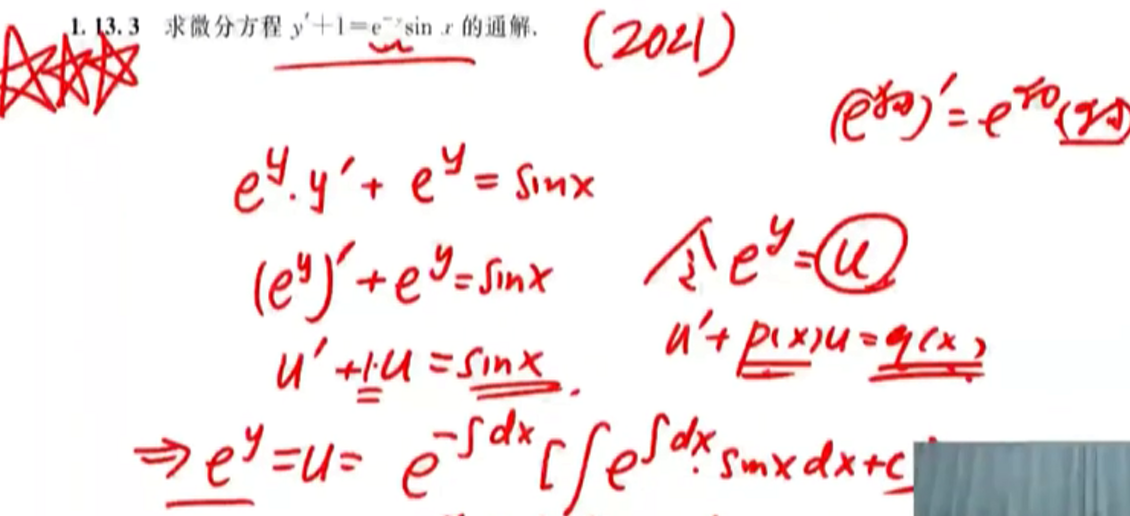 1.13.3 求微分方程 y′+1=e⁻ʸsin x 的通解.
(2021)
(e^{f(x)})′=e^{f(x)}
e^y·y′+e^y=sinx
(e^y)′+e^y=sinx
令e^y=u
u′+1·u=sinx.
u′+p(x)u=q(x)
⇒e^y=u=e^{-∫dx}[∫e^{∫dx}·sinxdx+c